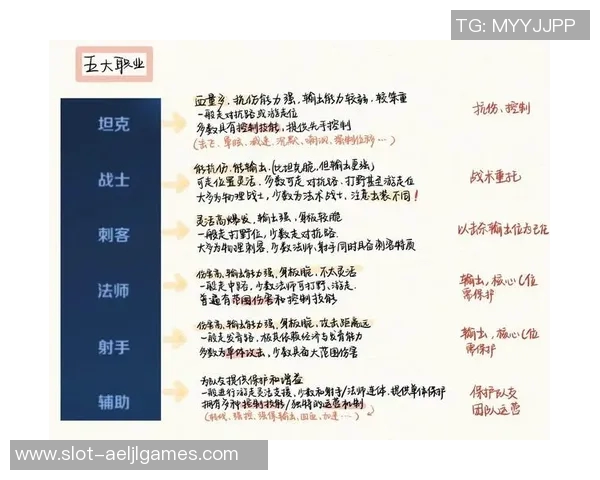 TG: MYYJJPP
五大职业
坦克
血量多，抗伤能力强，输出能力较弱，较笨重
一般走对抗路或游走位
多数具有控制技能，提供先手控制
(击飞、晕眩、减速、沉默、嘲讽、强制位移…)
抗伤、控制
战士
能抗伤，能输出，(比坦克脆，但输出更强)
可走位置灵活，多数可走对抗路、打野甚至游走位
大多为物理战士，少数为法术战士，注意出装不同！
战术重托
刺客
灵活高爆发，输出强，身板较脆
一般走打野位，少数走对抗路
大多为物理刺客，少数法师、射手同时具备刺客特质
以击杀输出位为己任
法师
伤害高，输出能力强，身板脆，不太灵活
一般走中路，少数法师可打野、游走
普遍有范围伤害和控制技能
输出，核心C位
需保护
射手
伤害高，输出能力强，身板脆，攻击距离远
一般走发育路，极具依赖经济与发育能力
多数为单体攻击，少数具备大范围伤害
输出，核心C位
需保护
辅助
为队友提供保护和增益
一般进行游走灵活支援，少数和射手/法师连体，提供单体保护
拥有多种控制技能/独特的运营机制
强控、强保输出、回血、加速…)
保护队友
团队运营
www.slot-aeljlgames.com